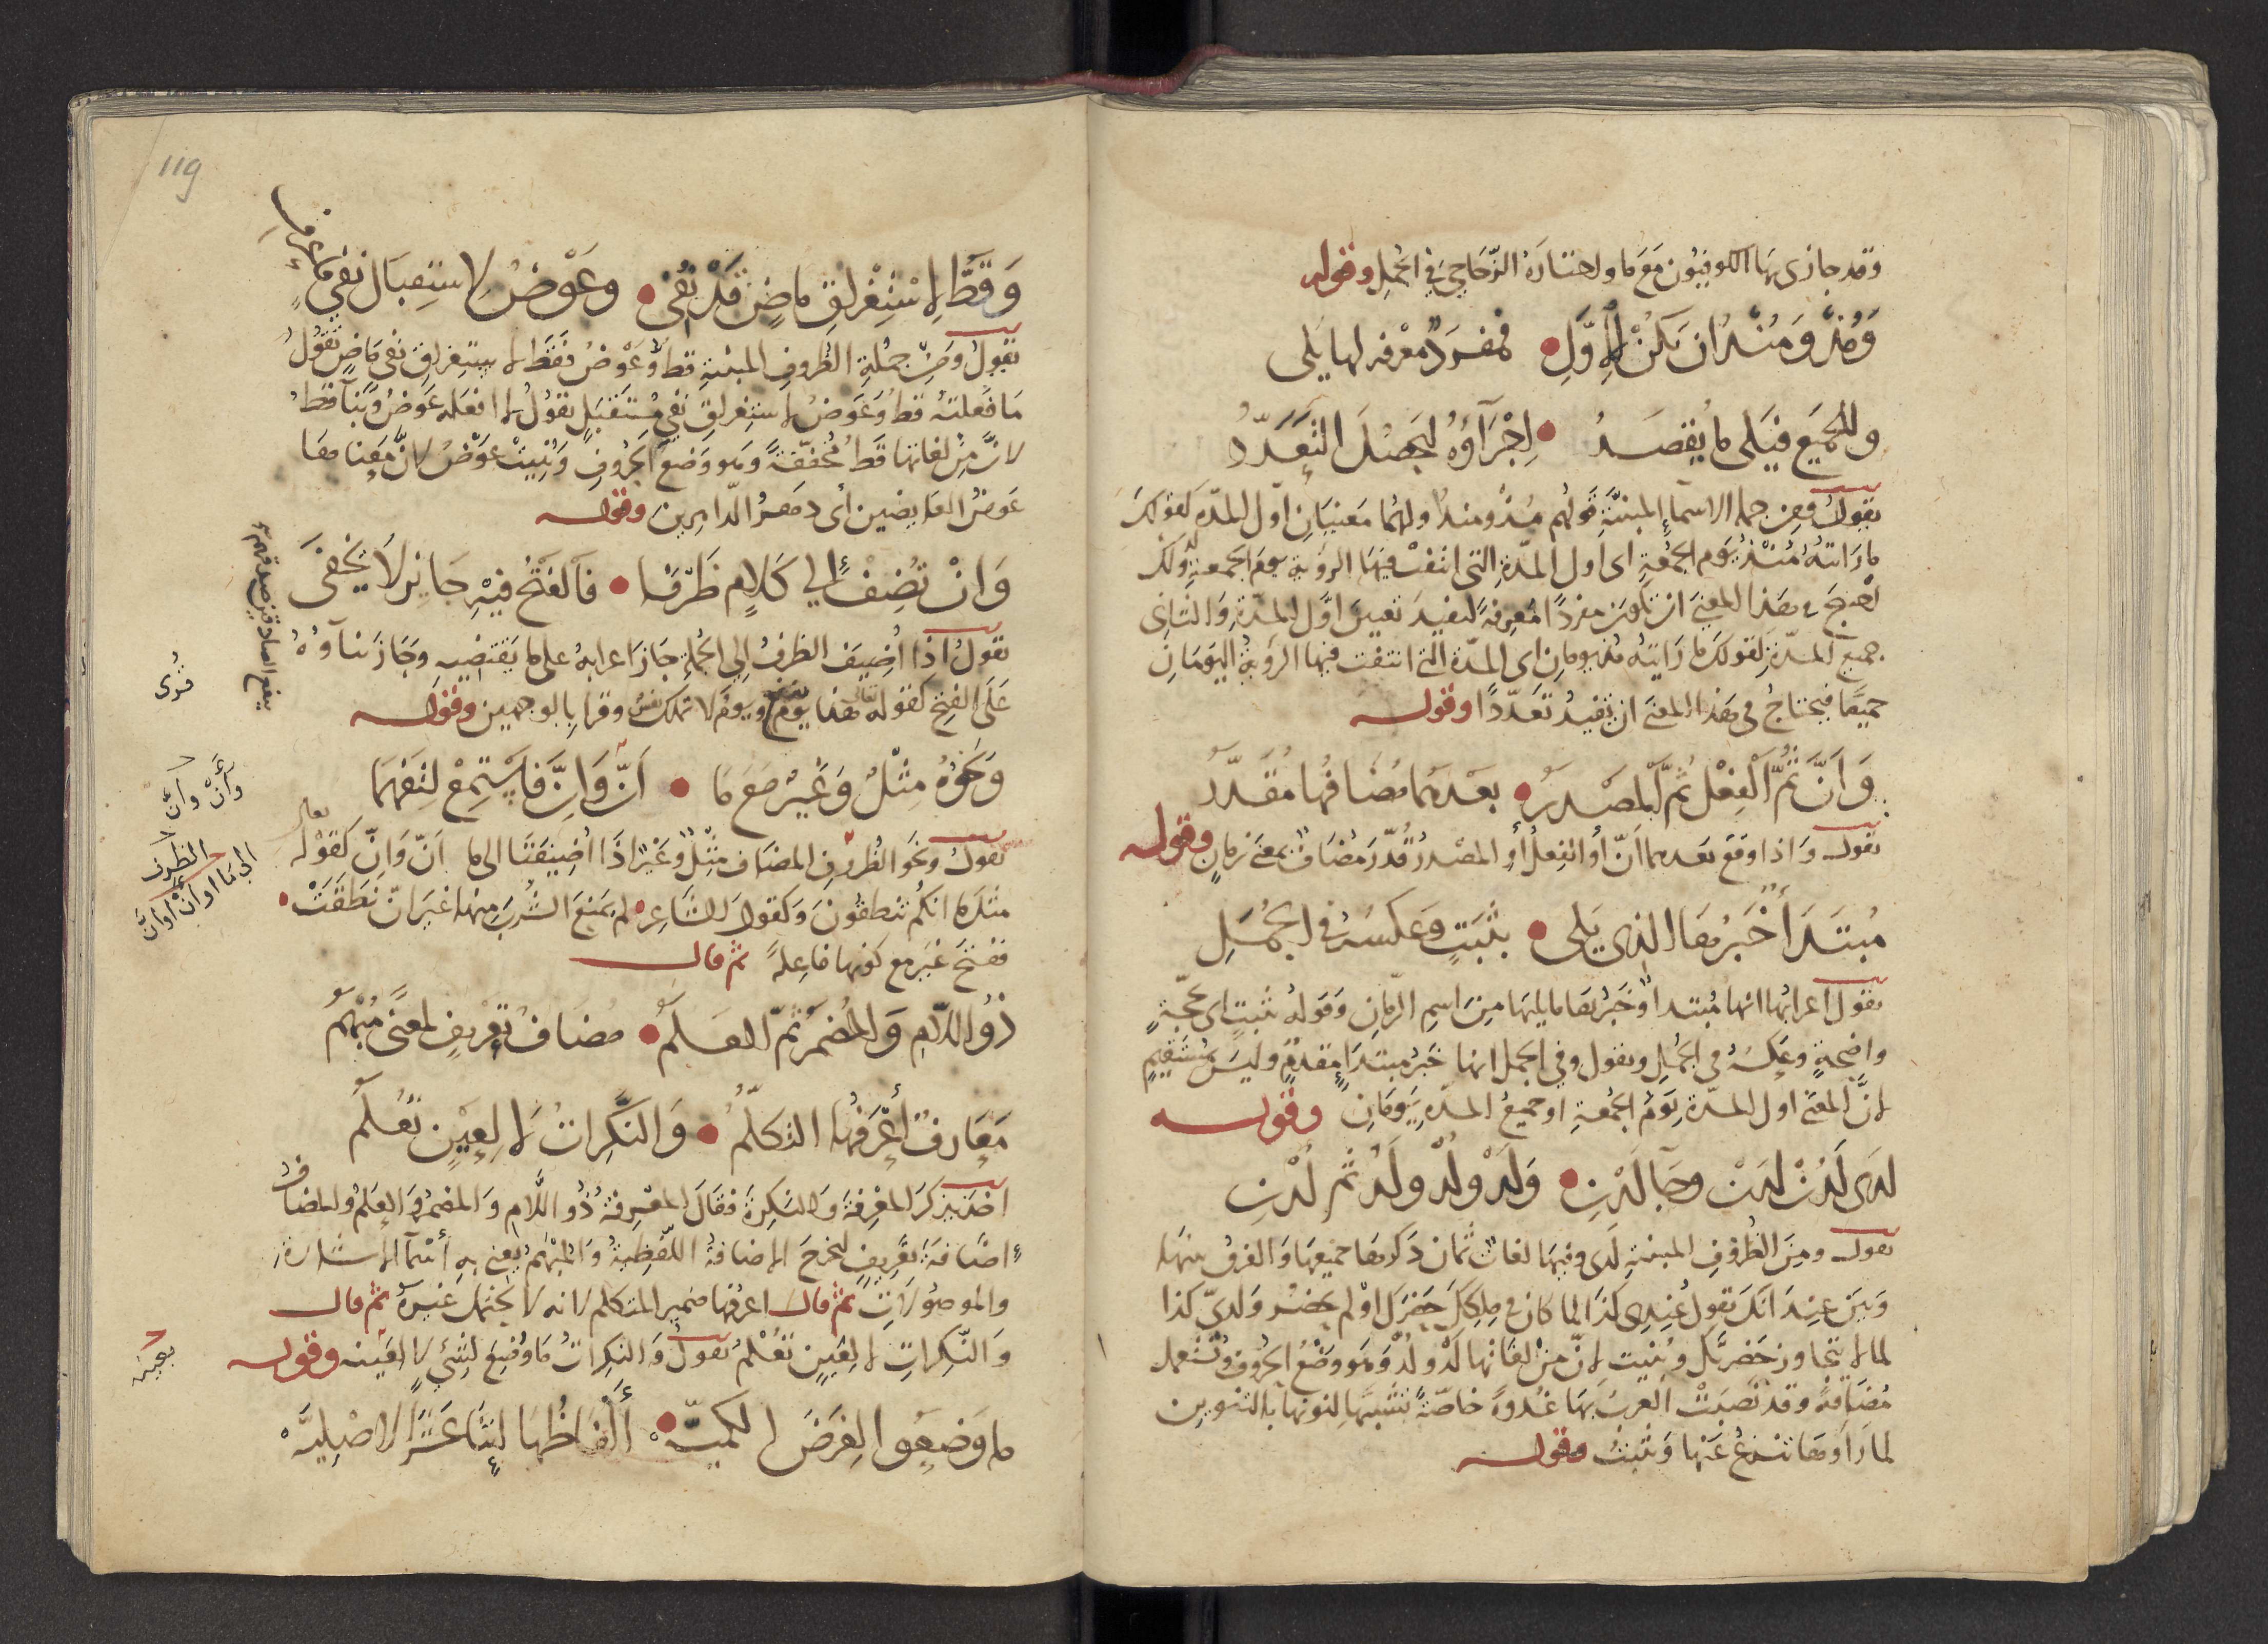 وقد جازى بها الكوفيون مع ما واختاره الزجاجي في الجمل وقوله
وَمُذْ وَمُنْذُ ان يَكُنْ لِأَوَّلِ • فمفرد معرفه لها يلى
وللجميع فيلى ما يقصدُ • اِجْرَآؤُه ليحصل التعدّدُ
يقول ومن جمله الاسماءِ المبنيَّةِ قولهم مُذْ ومنذُ ولهما معنيانِ اوّل المدّه كقولك
ما راتتهُ مُنْذُ يَوم الجُمُعَةِ اى اول المدّةِ التي انتفتْ فيها الرؤية يوم الجمعةِ ولك
في هذا المعنى ان تكون مفردًا معرفةً لتفيدَ تعيين اوّل المدّةِ والثاني
جميع المدّةِ لقولك ما راَيتهُ مذ يومانِ اى المدّة التي انتفت فيها الرؤيةُ اليَومانِ
جميعًا فيحتاجُ في هذا المعنى ان تفيدُ تعدّدًا وقولـه
وَاَنَّ ثُمَّ الْفِعْل ثُمَّ الْمَصْدرُ • بعْدهما مُضافُها مُقَدَّرُ
يقول وَاذا وقع بعدهما اَنّ أو الفعلُ أو المصْدرُ قُدّرَ مُضَافٌ بمعنى زمانٍ وقوله
مُبتَدَأ خَبَرُها الذى يَلى • بثَبَتٍ وَعكسُهُ في الجُمَلِ
يقول اعرابُها انها مُبتداٌ وخَبَرُها ما يليها مِن اسمِ الزّمانِ وَقولهُ بثبتٍ اى بحجّةٍ
واضحةٍ وعكسُهُ في الجُمَلِ ويقول وفي الجمل انها خبرُ مبتداٍ مقدمٌ وليسَ بمُستَقيمٍ
لانَّ المعنى اول المدّةِ يَومُ الجُمعةِ او جميعُ المدّةِ يَومَانِ وقولـه
لدَى لَدُنْ لدَن وجَا لَدْنِ • وَلَدْ وَلُدْ ولَدُ ثم لُدْنِ
يقول ومِن الظُروفِ المبنيةِ لَدى وفيها لغاتٌ ثمان ذَكرها جميعها وَالفرق بينها
وَبَين عِندَ انّكَ تقول عِندى كذا لما كان في مِلكِكَ حَضَرَكَ او لم يحضُر وَلديّ كذا
لما لا يتجاوز حَضرتَك وبُنيت لانّ مِنْ لغاتها لَدْ ولُدْ وهو وضْعُ الحُروف وتُستعمل
مُضَافةً وقد نصَبَتْ العربُ بها غُدوةً خاصّةً تشبيهًا لنونها بالتنوين
لما رَاَوها تنزعُ عنها وَتثبتُ وقولـه
119
وَقَطُّ لِاسْتِغْراقِ ماضٍ قَدْ نُفِى • وعَوْضُ لاستِقبَال نفيٍ
يقولُ ومن جُملةِ الظُروفِ المبنيةِ قطُ وَعَوْضُ فقط لاستِغراقِ نفى مَاضٍ تقولُ
مَا فعلتهُ قطُ وَعَوضُ لاستغراقِ نفي مُستَقبَلٍ تقولُ لا افعَله عَوضُ وَبنآ قطُ
لانَّ مِن لغاتها قَطْ مُخفّفةً وهو وَضْعَ الحُروفِ وَبُنِيَتْ عَوْضُ لانَّ مَعناها
عَوضُ العايضين أى دهرُ الدّاهرين وقولـه
وَانْ تُضِفْ الي كَلامٍ ظَرْفا • فَالفَتحُ فيْهِ جَائز لا يَخفَى
يقول اذا اُضِيفَ الظرفُ الى الجُملةِ جازَ اعرابهُ على ما يَقتَضيهِ وجَازَ بناؤُهُ
عَلَى الفتح كقوله تعالى هذا يَومُ ينفع ويومُ لا تملك نفس وقرا بالوجهين وقولـه
وَنحوُهُ مِثْلُ وَغَيْرُ مَعَ مَا • اَنّ وَاِنَّ فَاسْتَمِعْ لتفهَمَا
يقول ونحو الظُروفِ المضَاف مِثْلُ وغَيْرُ اذَا اُضِيفَتَا الى ما اَنّ وَاِنّ كقوله تعالى
مثلَ ما انكم تنطقونَ وَكقول الشاعِرِ لم يَمنَع الشُربَ مِنها غيرَ انّ نطَقَتْ
ففتحَ غَيرَ مع كونها فاعِلهً ثم قال
ذُو اللّامِ وَالمُضمَرُ ثمّ العَلمُ • مُضَافُ تعْريفٍ لمعنىً مُبْهَمُ
مَعَارفٌ أعْرَفُها التكلّمُ • وَالنَّكِراتُ لا لِعَيْنٍ تُعْلَمُ
اخذ يذكرُ المعْرِفةَ وَالنكِرةَ فقالَ المعْرِفةُ ذُو اللّامِ وَالمضمرُ والعَلمُ والمضاف
اضَافَةَ تَعْريفٍ ليَخرجَ الاضافةُ اللّفظِيةُ وَالمُبْهَمُ يعنى بهِ اَسْمَآ الاِشَارةِ
والموصُولاتِ ثم قال اعرفُها ضمير المتكلم لانه لا يحتمل غيرهُ ثم قال
وَالنّكِراتِ لا لعَينٍ تُعْلمُ يقولُ وَالنكِراتُ مَا وُضِعَ لشيءٍ لا لعَينه وقولـه
ما وَضعُو الِغرَضِ الكميّهْ • أَلْفَاظُهَا اِثْنَا عَشَرَ الاصْلِيَّهْ
ينفع الصادقين صدقهم
قرئ
وأنْ وأنَّ
الظرف
الى ما او أنْ او أنَّ
بعينه